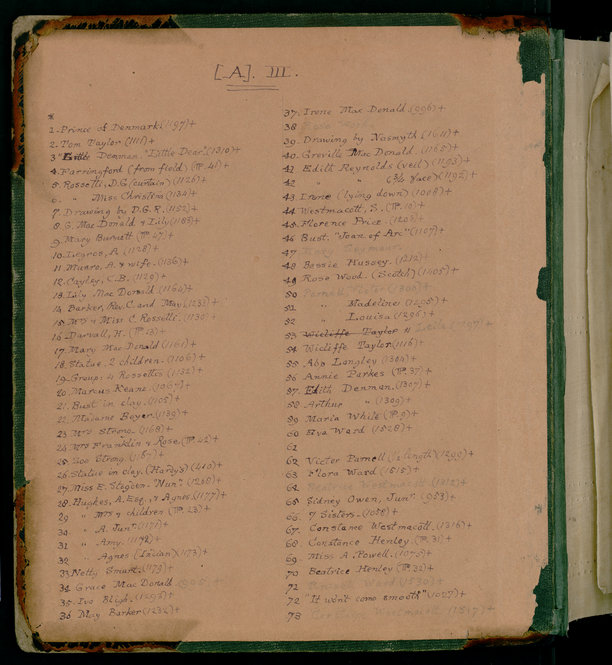 [A]. III.
1. Prince of Denmark (1197)+
2. Tom Taylor (1111)+
3 "Little Denman. "Little Dear" (1310)+
4. Farringford (from field) (P. 41)+
5. Rossetti, D.G (curtain) (1126)+
6. " Miss Christina (1134)+
7. Drawing by D.G.R. (1152)+
8. G. Mac Donald & Lily (1183)+
9. Mary Burnett (P. 47)+
10. Legros, A (1128)+
11. Munro, A. & wife. (1136)+
12. Cayley, C.B. (1129)+
13. Lily Mac Donald (1164)+
14. Barker, Rev. C. and May (1232)+
15. Mrs & Miss C. Rossetti. (1130)+
16. Darvall, H. (P. 13)+
17. Mary Mac Donald (1161)+
18. Statue, 2 children. (1106)+
19. Group: 4 Rossettis (1132)+
20. Marcus Keane. (1067)+
21. Bust in clay. (1105)+
22. Madame Boyer. (1139)+
23 Mrs Strong. (1168)+
24 Mrs Franklin & Rose. (P. 42)+
25 Zoe Strong. (1167)+
26. Statue in clay. (Hardy's) (410)+
27. Miss E. Stogdon "Nun" (1268)+
28. Hughes, A. Esq., & Agnes. (1177)+
29 " Mrs & children (P. 23)+
30 " A. Junr (1171)+
31 " Amy. (1172)+
32 " Agnes (Italian) (1173)+
33 Netty Smunt. (1179)+
34. Grace Mac Donald
35. Ivo Bligh. (1293)+
36 May Barker (1232)+
37. Irene Mac Donald (996)+
38
39. Drawing by Nasmyth (1611)+
40. Greville Mac Donald. (1165)+
41 Edith Reynolds (veil) (1193)+
42 " " (3/4 face) (1192)+
43 Irene (lying down) (1008)+
44 Westmacott, S. (P. 10)+
45. Florence Price (1203)+
46 Bust. "Joan of Arc" (1107)+
47
48 Bessie Hussey. (1212)+
49 Rose Wood. (Scotch) (1405)+
50 Parnell Victor (1300)+
51 " Madeline (1295)+
52 " Louisa (1296)+
53 Wicliffe Taylor & Leila (1297)+
54 Wicliffe Taylor (1116)+
55 Abp Longley (1304)+
56 Annie Parkes (P. 37)+
57. Edith Denman. (1307)+
58 Arthur " (1309)+
59 Maria White (P. 9)+
60 Eva Ward (1528)+
61
62 Victor Parnell (1/2 length) (1299)+
63 Flora Ward (1515)+
64 Beatrice Westmacott. (1312)+
65 Sidney Owen, Junr. (953)+
66. 7 Sisters. (1058)+
67. Constance Westmacott. (1316)+
68. Constance Henley. (P. 31)+
69. Miss A. Powell. (1075)+
70 Beatrice Henley (P. 32)+
72 (1530)+
72 "It won't come smooth" (1027)+
73 Westmacott (1317)+